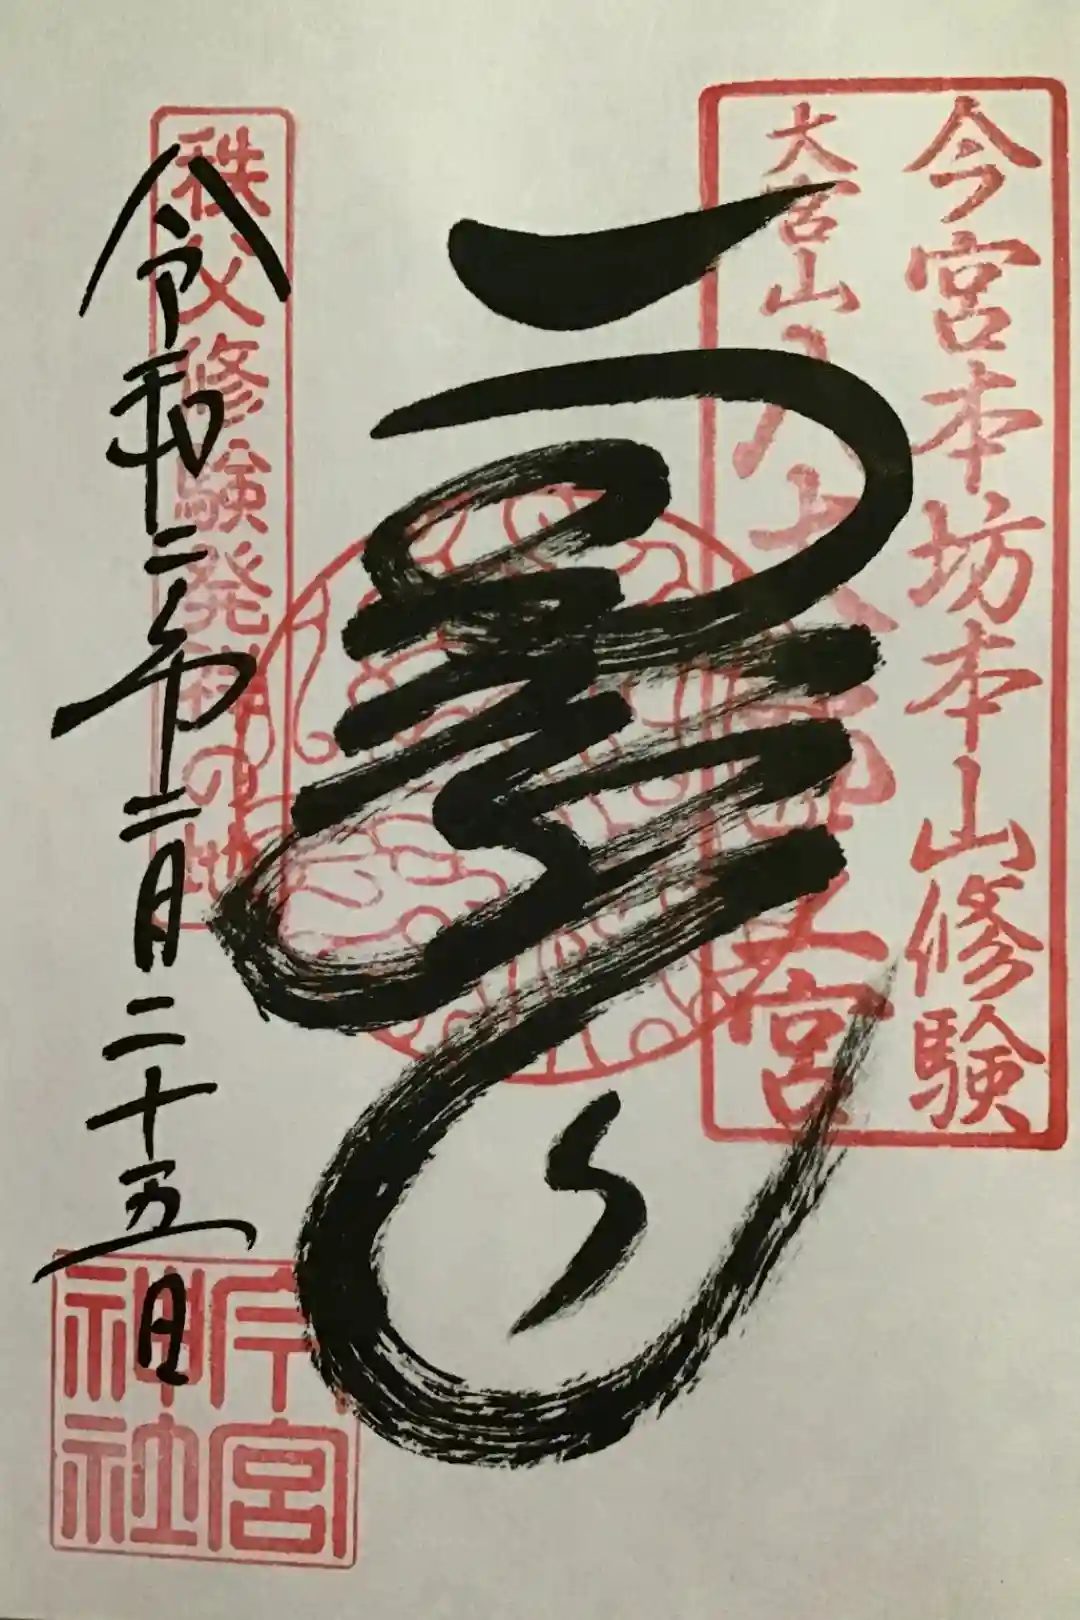 今宮本坊本山修験
大宮山八大龍王宮
令和二年二月二十五日
秩父修験発祥の地
今宮神社